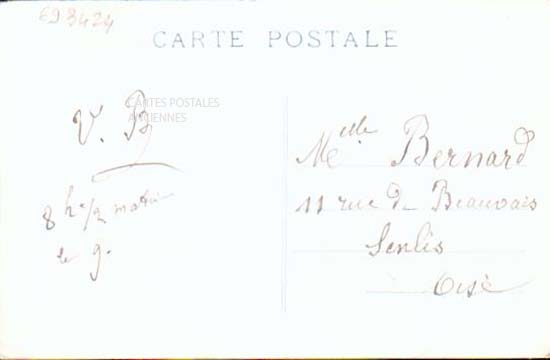 693424
CARTE POSTALE
CARTES POSTALES
ANCIENNES
V. B
8 h 1/2 matin
le 9.
Melle Bernard
11 rue de Beauvais
Senlis
Oise